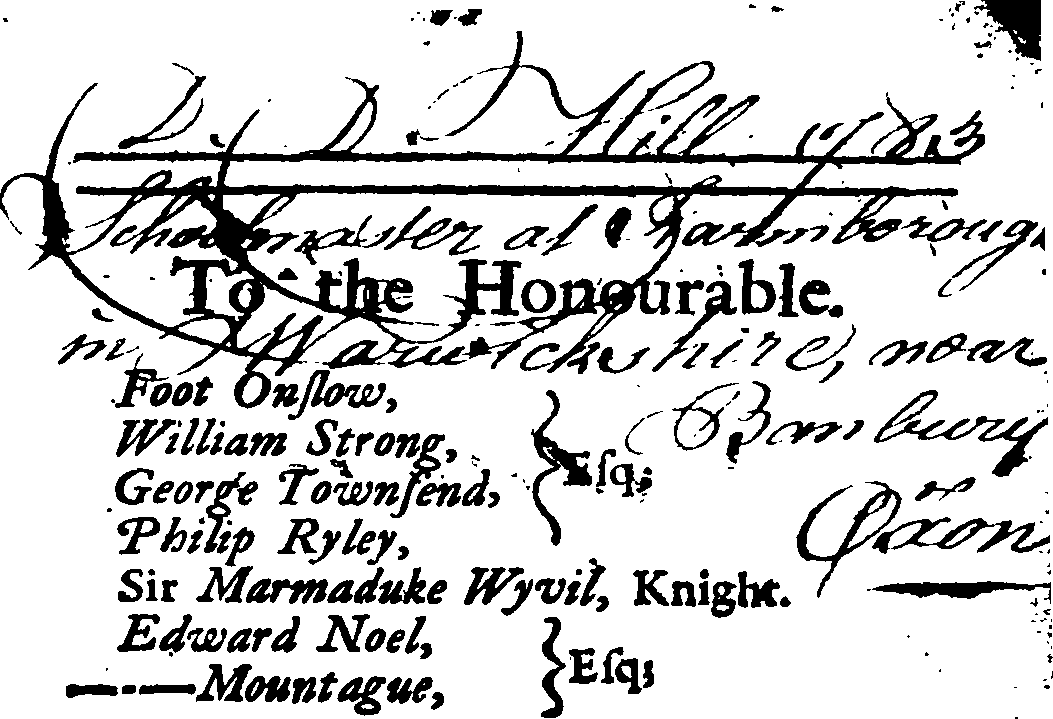 D. D. Hill 1783
Schoolmaster at Farmborough
To the Honourable.
in Warwickshire, near
Foot Onſlow,
Banbury
William Strong,
Eſq;
George Townſend,
Oxon
Philip Ryley,
Sir Marmaduke Wyvil, Knight.
Edward Noel,
Eſq;
—-—Mountague,